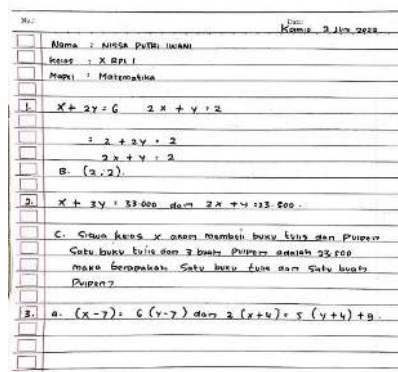 No.:
Date:
Kamis 2 Jun 2022
Nama : NISSA PUTRI IWANI
Kelas : X RPL 1
Mapel : Matematika
1. x + 2y = 6 2x + y = 2
= 2 + 2y = 2
2x + y = 2
B. (2,2).
2. x + 3y = 33.000 dan 2x + y = 23.500.
C. Siswa kelas x akan membeli buku tulis dan Pulpen
Satu buku tulis dan 3 buah Pulpen adalah 23.500
maka berapakah Satu buku tulis dan Satu buah
Pulpen?
3. a. (x-7) = 6 (y-7) dan 2 (x+4) = 5 (y+4) + 9.